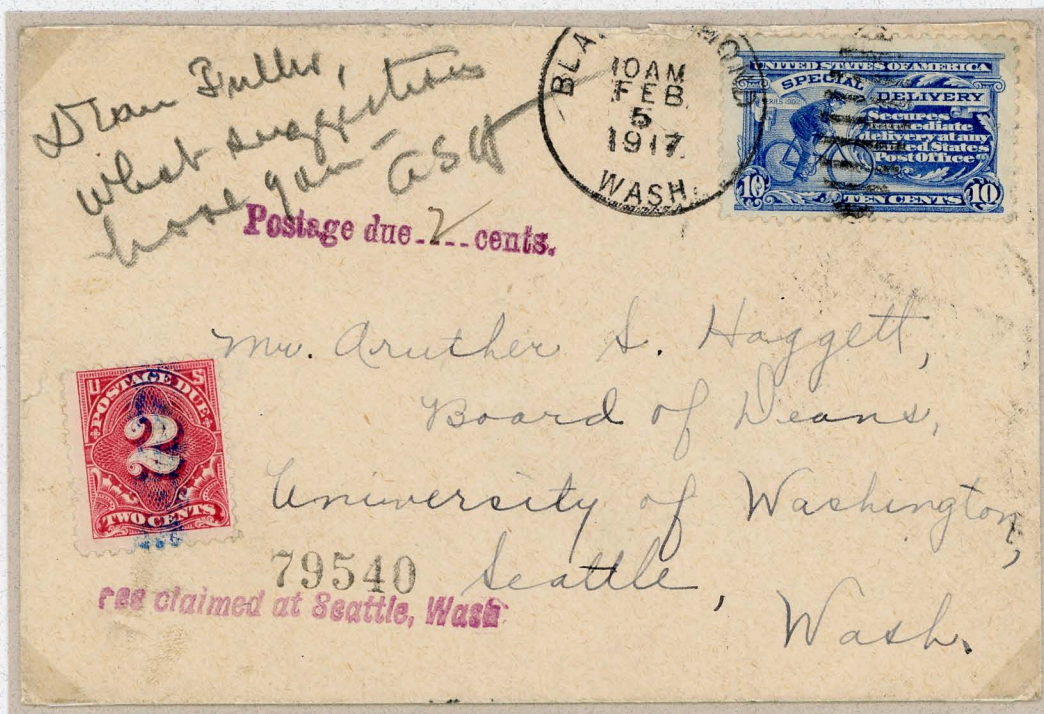 Dean Fuller,
What suggestions
have you -
ASH
Postage due 2 cents.
10AM
FEB
5
1917
WASH.
UNITED STATES OF AMERICA
SPECIAL DELIVERY
SERIES 1902
Secures
immediate
delivery at any
United States
Post Office
10 TEN CENTS 10
Mr. Aruther S. Haggett,
Board of Deans,
University of Washington,
Seattle,
Wash.
U S
POSTAGE DUE
2
TWO CENTS
79540
Fee claimed at Seattle, Wash